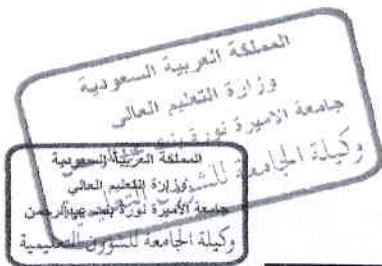 المملكة العربية السعودية
وزارة التعليم العالي
جامعة الاميرة نورة بنت
وكيلة الجامعة للشؤون التعليمية
المملكة العربية السعودية
وزارة التعليم العالي
جامعة الأميرة نورة بنت عبدالرحمن
وكيلة الجامعة للشؤون التعليمية